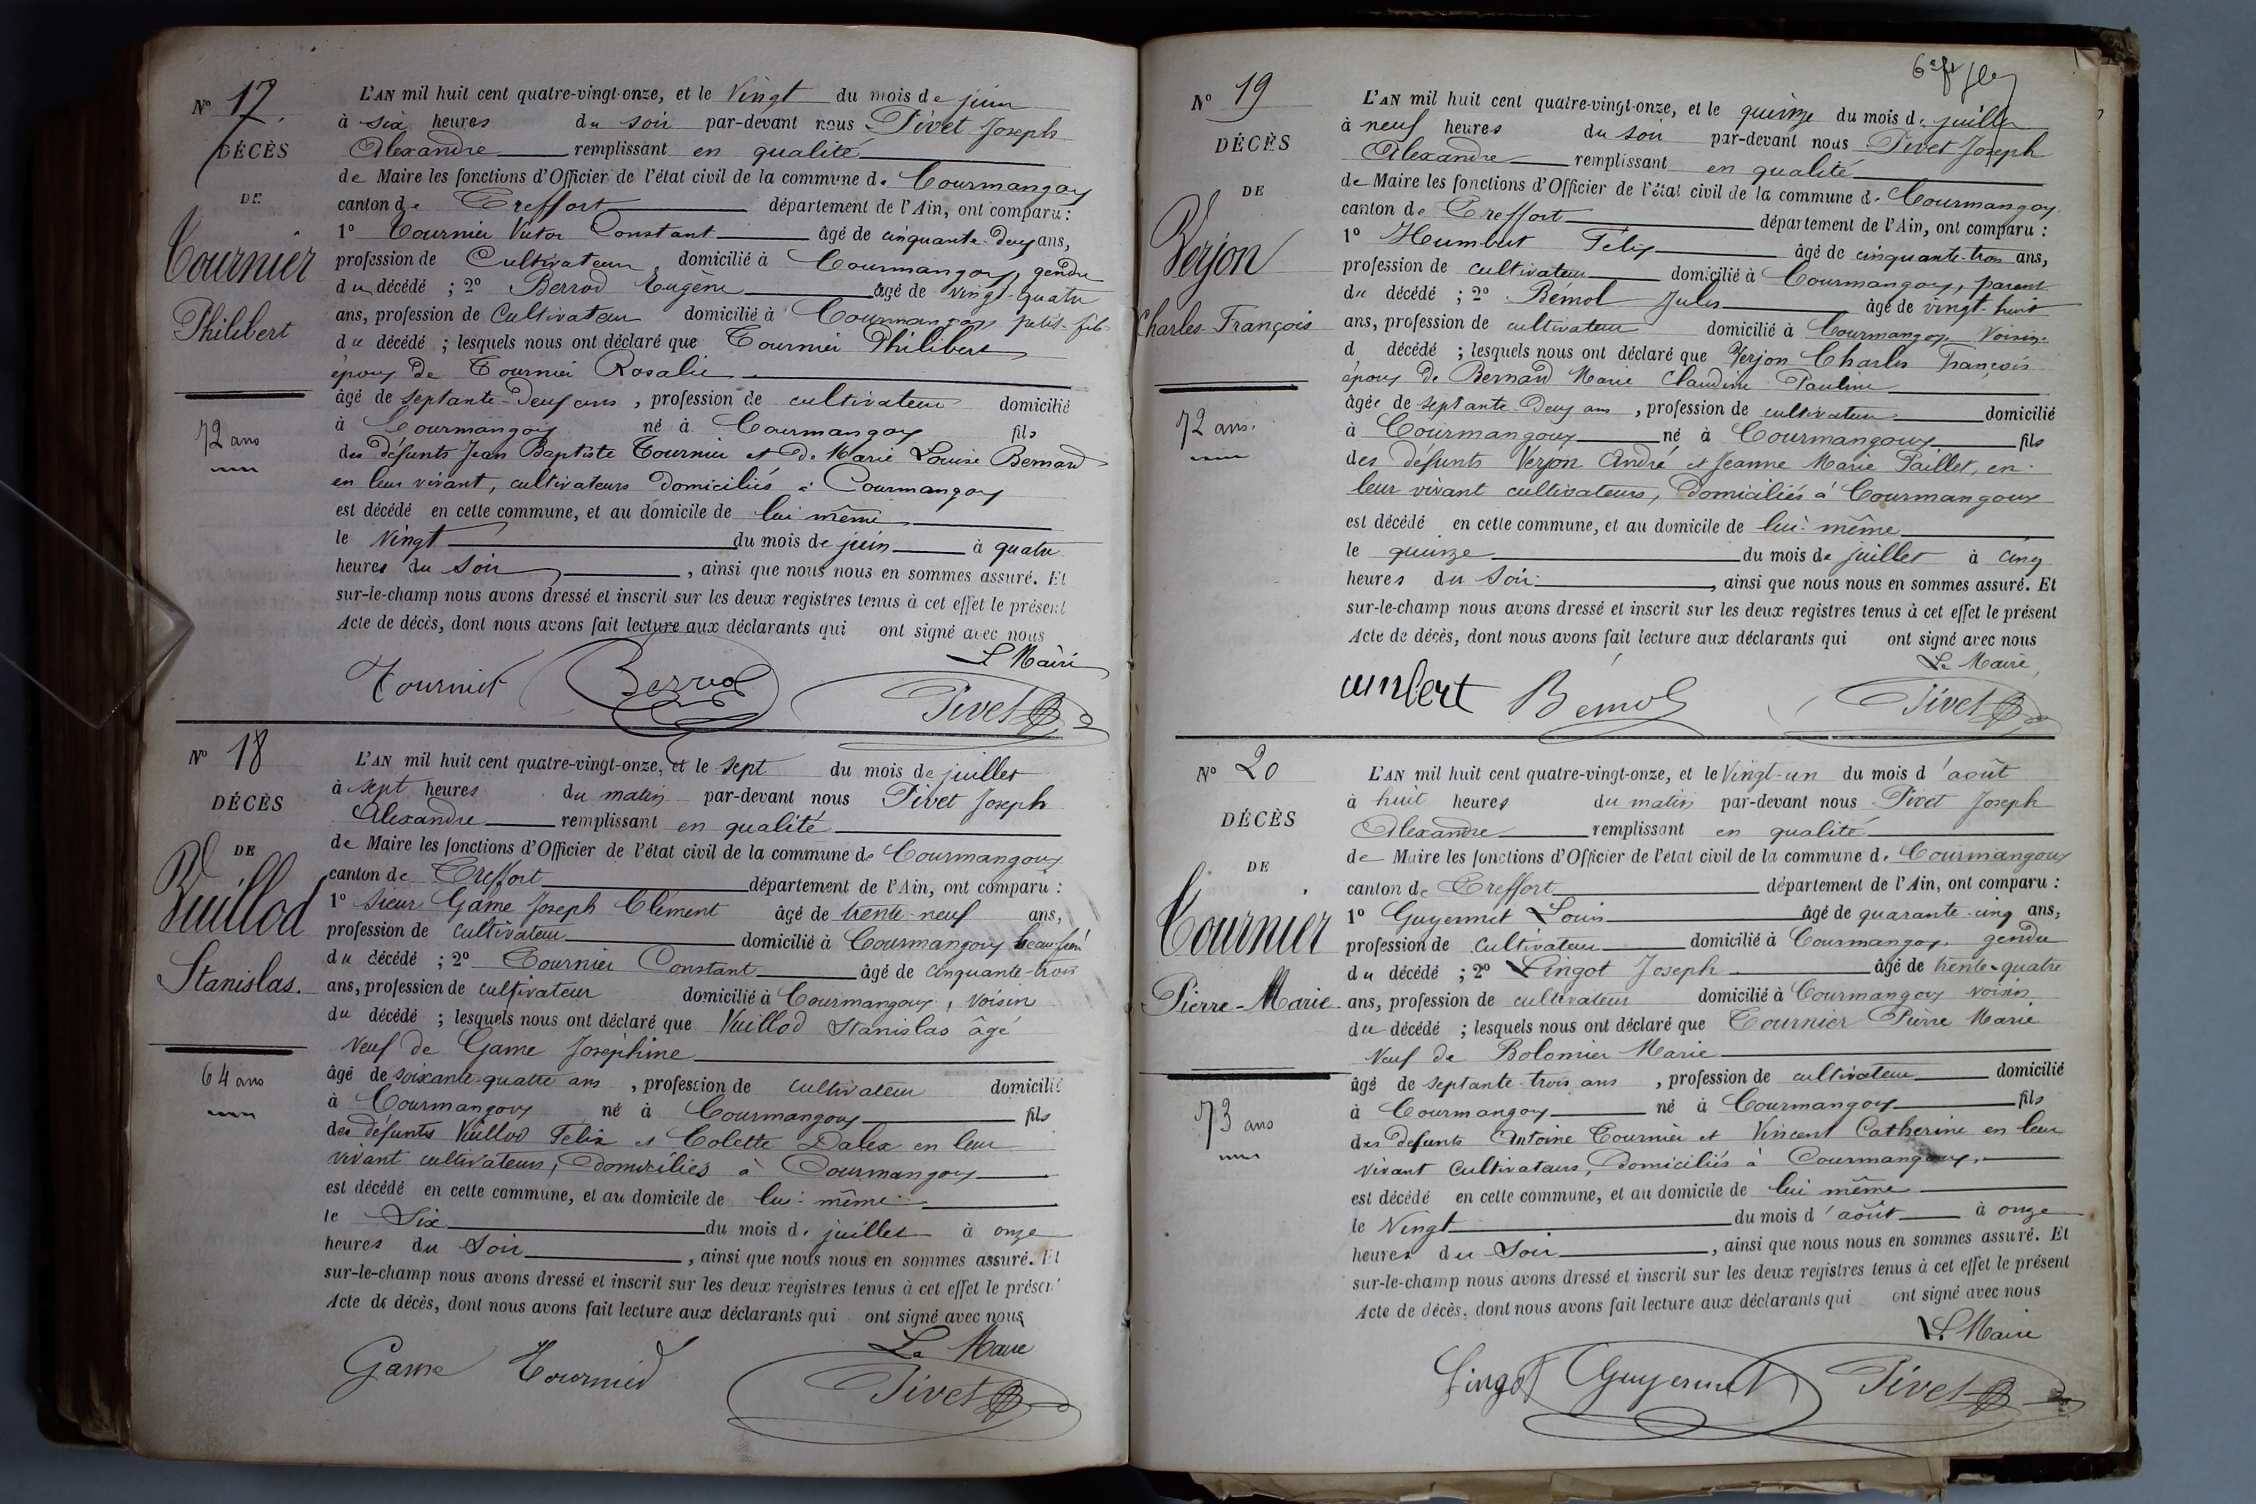 N° 17
DÉCÈS
DE
Tournier
Philibert
72 ans
L'AN mil huit cent quatre-vingt-onze, et le Vingt du mois de juin
à six heures du soir par-devant nous Pivet Joseph
Alexandre remplissant en qualité
de Maire les fonctions d'Officier de l'état civil de la commune de Courmangoux
canton de Treffort département de l'Ain, ont comparu :
1° Tournier Victor Constant âgé de cinquante-deux ans,
profession de Cultivateur domicilié à Courmangoux, gendre
du décédé ; 2° Berrod Eugène âgé de vingt-quatre
ans, profession de Cultivateur domicilié à Courmangoux petit-fils
du décédé ; lesquels nous ont déclaré que Tournier Philibert
époux de Tournier Rosalie
âgé de septante-deux ans, profession de cultivateur domicilié
à Courmangoux né à Courmangoux fils
des défunts Jean Baptiste Tournier et de Marie Louise Bernard
en leur vivant, cultivateurs domiciliés à Courmangoux
est décédé en cette commune, et au domicile de lui même
le Vingt du mois de juin à quatre
heures du soir, ainsi que nous nous en sommes assuré. Et
sur-le-champ nous avons dressé et inscrit sur les deux registres tenus à cet effet le présent
Acte de décès, dont nous avons fait lecture aux déclarants qui ont signé avec nous
Le Maire
Tournier Berrod Pivet
N° 18
DÉCÈS
DE
Vuillod
Stanislas.
64 ans
L'AN mil huit cent quatre-vingt-onze, et le sept du mois de juillet
à sept heures du matin par-devant nous Pivet Joseph
Alexandre remplissant en qualité
de Maire les fonctions d'Officier de l'état civil de la commune de Courmangoux
canton de Treffort département de l'Ain, ont comparu :
1° Sieur Game Joseph Clément âgé de trente-neuf ans,
profession de cultivateur domicilié à Courmangoux beau-frère
du décédé ; 2° Tournier Constant âgé de cinquante-trois
ans, profession de cultivateur domicilié à Courmangoux, voisin
du décédé ; lesquels nous ont déclaré que Vuillod Stanislas âgé
Veuf de Game Joséphine
âgé de soixante-quatre ans, profession de cultivateur domicilié
à Courmangoux né à Courmangoux fils
des défunts Vuillod Félix et Colette Dalex en leur
vivant cultivateurs, domiciliés à Courmangoux
est décédé en cette commune, et au domicile de lui-même
le Six du mois de juillet à onze
heures du Soir, ainsi que nous nous en sommes assuré. Et
sur-le-champ nous avons dressé et inscrit sur les deux registres tenus à cet effet le présent
Acte de décès, dont nous avons fait lecture aux déclarants qui ont signé avec nous
Le Maire
Game Tournier Pivet
N° 19
DÉCÈS
DE
Verjon
Charles-François
72 ans.
L'AN mil huit cent quatre-vingt-onze, et le quinze du mois de juillet
à neuf heures du soir par-devant nous Pivet Joseph
Alexandre remplissant en qualité
de Maire les fonctions d'Officier de l'état civil de la commune de Courmangoux
canton de Treffort département de l'Ain, ont comparu :
1° Humbert Félix âgé de cinquante-trois ans,
profession de cultivateur domicilié à Courmangoux, parent
du décédé ; 2° Bémol Jules âgé de vingt-huit
ans, profession de cultivateur domicilié à Courmangoux Voisin
d décédé ; lesquels nous ont déclaré que Verjon Charles François
époux de Bernard Marie Claudine Pauline
âgée de septante-deux ans, profession de cultivateur domicilié
à Courmangoux né à Courmangoux fils
des défunts Verjon André et Jeanne Marie Paillet, en
leur vivant cultivateurs, domiciliés à Courmangoux
est décédé en cette commune, et au domicile de lui-même
le quinze du mois de juillet à cinq
heures du Soir, ainsi que nous nous en sommes assuré. Et
sur-le-champ nous avons dressé et inscrit sur les deux registres tenus à cet effet le présent
Acte de décès, dont nous avons fait lecture aux déclarants qui ont signé avec nous
Le Maire
umbert Bémol Pivet
N° 20
DÉCÈS
DE
Tournier
Pierre-Marie
73 ans
L'AN mil huit cent quatre-vingt-onze, et le Vingt-un du mois d'août
à huit heures du matin par-devant nous Pivet Joseph
Alexandre remplissant en qualité
de Maire les fonctions d'Officier de l'état civil de la commune de Courmangoux
canton de Treffort département de l'Ain, ont comparu :
1° Guyennet Louis âgé de quarante-cinq ans,
profession de cultivateur domicilié à Courmangoux gendre
du décédé ; 2° Lingot Joseph âgé de trente-quatre
ans, profession de cultivateur domicilié à Courmangoux voisin
du décédé ; lesquels nous ont déclaré que Tournier Pierre Marie
Veuf de Bolomier Marie
âgé de septante-trois ans, profession de cultivateur domicilié
à Courmangoux né à Courmangoux fils
des défunts Antoine Tournier et Vincent Catherine en leur
vivant Cultivateurs, domiciliés à Courmangoux
est décédé en cette commune, et au domicile de lui même
le Vingt du mois d'août à onze
heures du Soir, ainsi que nous nous en sommes assuré. Et
sur-le-champ nous avons dressé et inscrit sur les deux registres tenus à cet effet le présent
Acte de décès, dont nous avons fait lecture aux déclarants qui ont signé avec nous
Le Maire
Lingot Guyennet Pivet